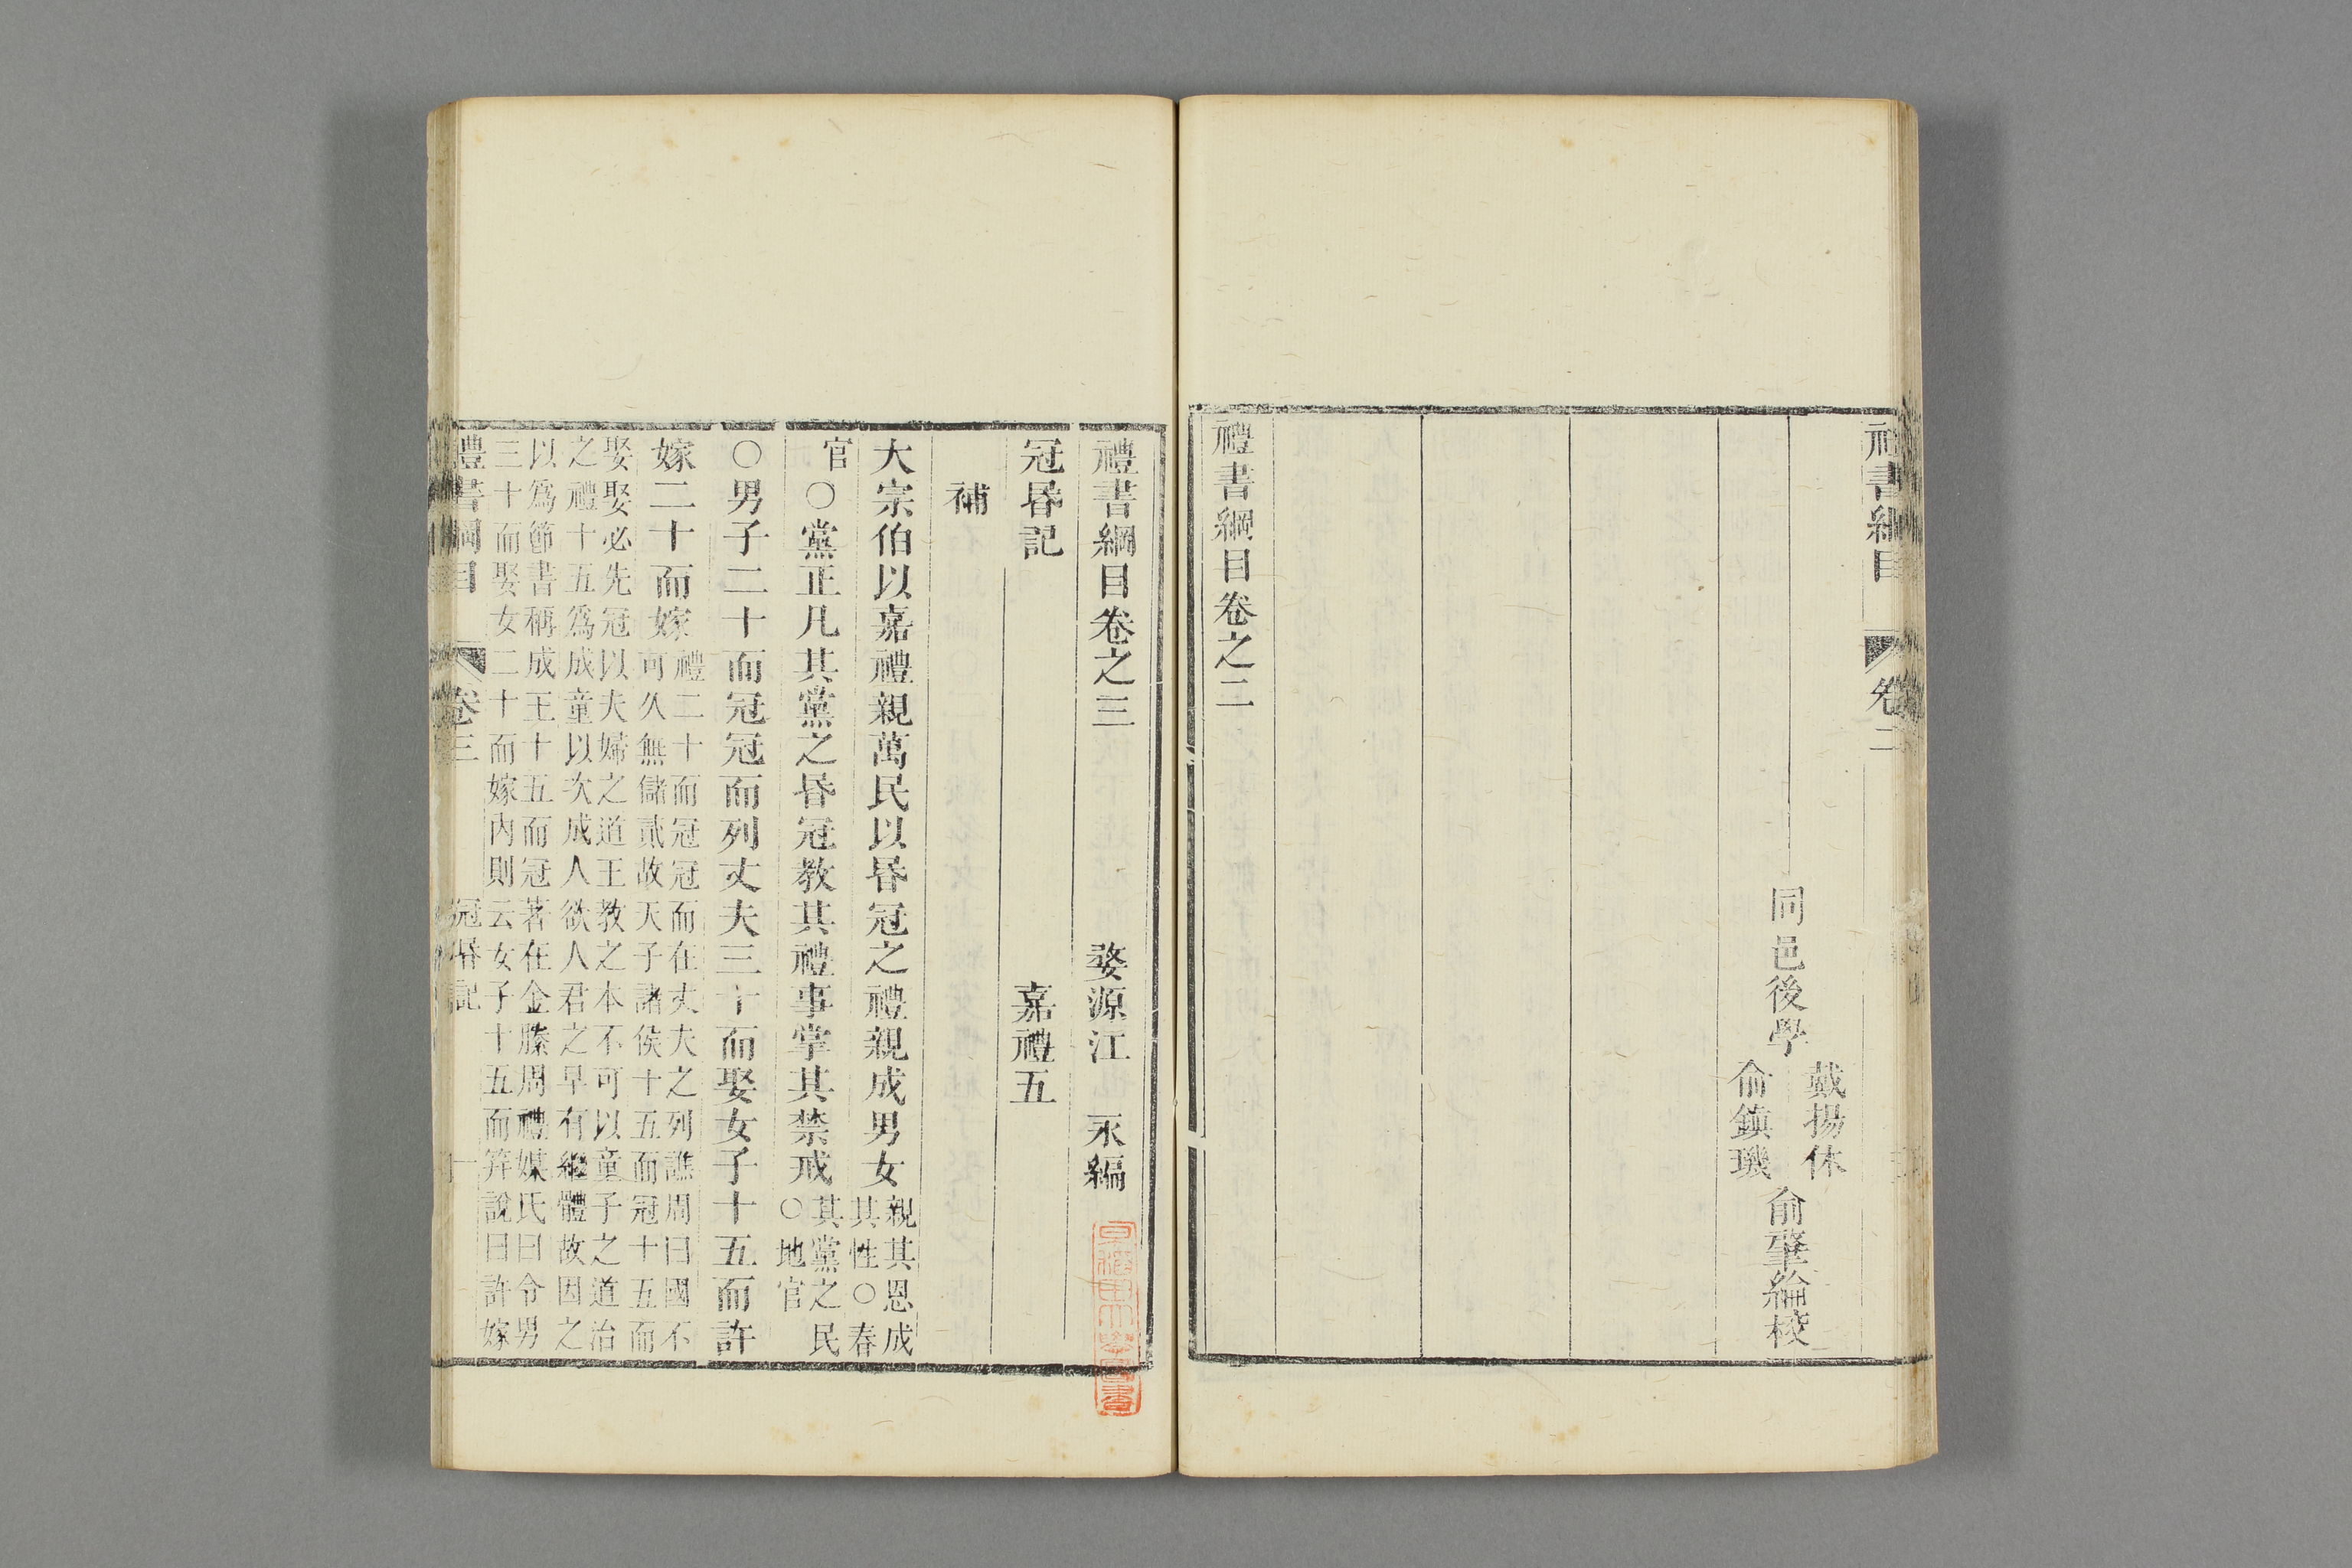 禮書綱目
卷二
同邑後學
戴揚休
俞鎮璣
俞肇綸校
禮書綱目卷之二
禮書綱目卷之三
婺源江 永編
冠昏記
嘉禮五
補
大宗伯以嘉禮親萬民以昏冠之禮親成男女
親其恩成
其性○春
官
○黨正凡其黨之昏冠教其禮事掌其禁戒
其黨之民
○地官
○男子二十而冠冠而列丈夫三十而娶女子十五而許
嫁二十而嫁
禮二十而冠冠而在丈夫之列譙周曰國不
可久無儲貳故天子諸侯十五而冠十五而
娶娶必先冠以夫婦之道王教之本不可以童子之道治
之禮十五為成童以次成人欲人君之早有繼體故因之
以為節書稱成王十五而冠著在金縢周禮媒氏曰令男
三十而娶女二十而嫁內則云女子十五而筓說曰許嫁
禮書綱目
卷三
冠昏記